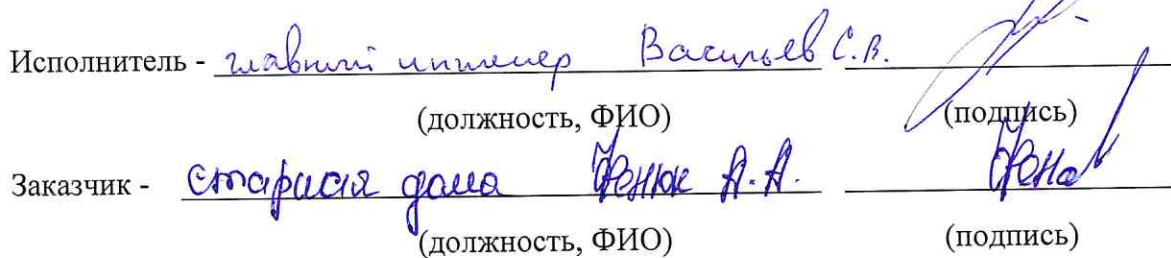 Исполнитель - главный инженер Васильев С.В.
(должность, ФИО) (подпись)
Заказчик - старшая дома А.А.
(должность, ФИО) (подпись)